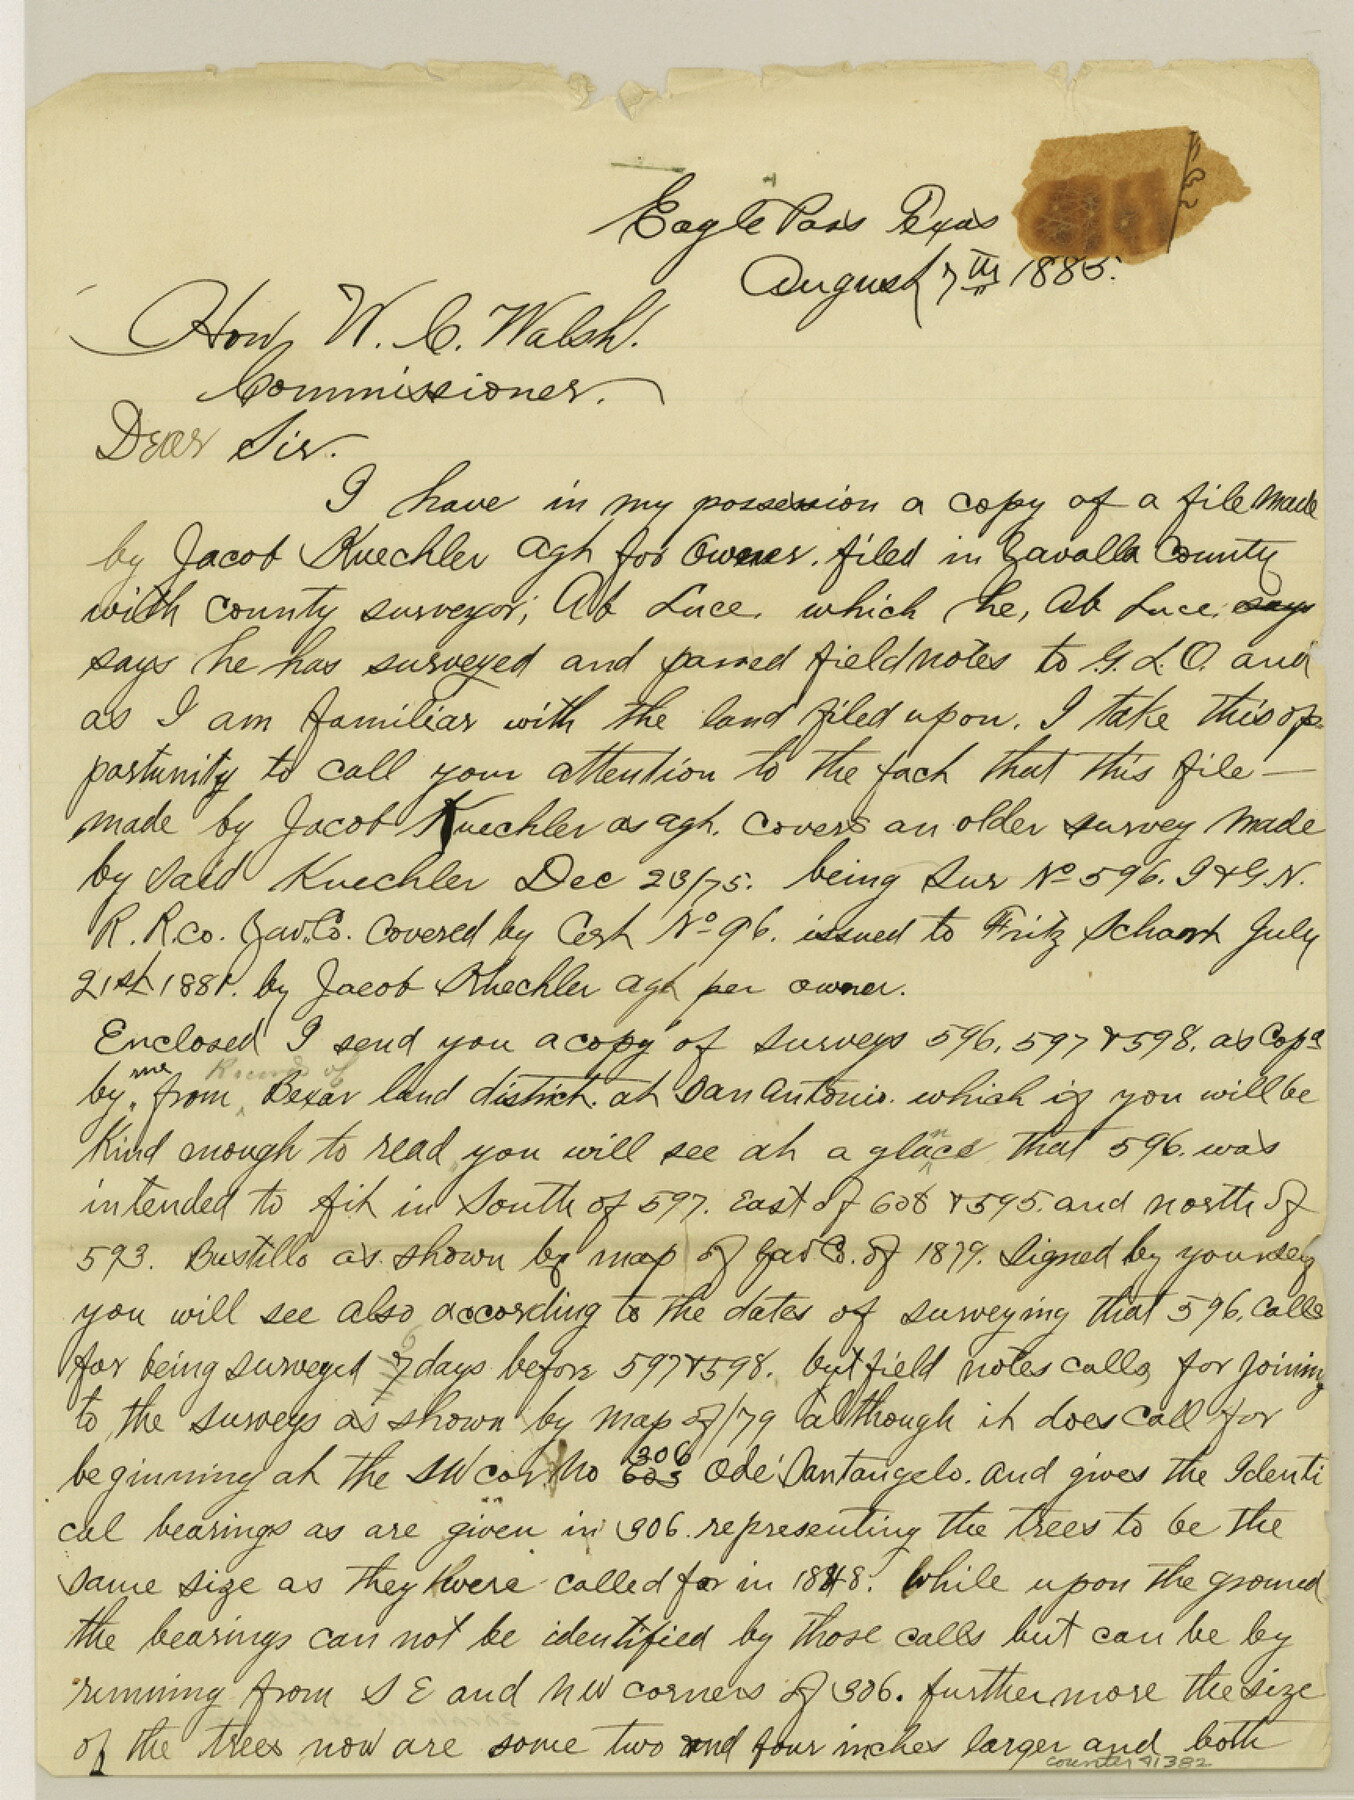 Eagle Pass Texas
August 7th 1885.
Hon W. C. Walsh.
Commissioner.
Dear Sir.
I have in my possession a copy of a file made
by Jacob Kuechler agt for Owner. filed in Zavalla County
with county surveyor; Ab Luce. which he, Ab Luce. says
says he has surveyed and passed fieldnotes to G. L. O. and
as I am familiar with the land filed upon. I take this op-
portunity to call your attention to the fact that this file —
made by Jacob Kuechler as agt. covers an older survey made
by said Kuechler Dec 23/75. being Sur No 596. I & G. N.
R. R. co. Zav. Co. Covered by Cert No 96. issued to Fritz Schant July
21st 1881. by Jacob Khechler agt per owner.
Enclosed I send you a copy of surveys 596, 597 & 598. as Copd
by me from Records of Bexar land district. at San Antonio. which if you will be
Kind enough to read you will see at a glance that 596. was
intended to fit in South of 597. East of 608 & 595. and north of
593. Bustillo as shown by map of Zav Co. of 1879. Signed by yourself
you will see also according to the dates of surveying that 596, Calls
for being surveyed 7 days before 597 & 598. but field notes calls for joining
to the surveys as shown by map of /79 although it does call for
beginning at the SW cor. No 306 Ode Santangelo. and gives the Identi
cal bearings as are given in 306. representing the trees to be the
same size as they were called for in 1848. While upon the ground
the bearings can not be identified by those calls but can be by
running from S E and NW corners of 306. furthermore the size
of the trees now are some two and four inches larger and both
counter 41382